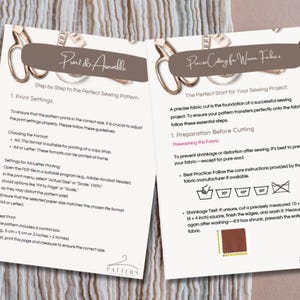 Print & Assemble
Step by Step to the Perfect Sewing Pattern
1. Print Settings
To ensure that the pattern prints in the correct size, it is crucial to adjust
the print settings properly. Please follow these guidelines:
Choosing the Format:
A0: This format is suitable for printing at a copy shop.
A4 or Letter: These formats can be printed at home.
Settings for A4/Letter Printing:
Open the PDF file in a suitable program (e.g., Adobe Acrobat Reader).
In the print menu, select "Actual Size" or "Scale: 100%".
(Avoid options like "Fit to Page" or "Scale,"
as they may distort dimensions.)
Ensure that the selected paper size matches the chosen file format
(A4 or Letter).
Test Print:
The pattern includes a control box
(e.g., 5 cm × 5 cm or 2 inches × 2 inches).
print this page and measure to ensure the correct size.
PATTERN
Precise Cutting for Woven Fabrics
The Perfect Start for Your Sewing Project:
A precise fabric cut is the foundation of a successful sewing
project. To ensure your pattern transfers perfectly onto the fabric
follow
1. Preparation Before Cutting
Prewashing the Fabric
To prevent shrinkage or distortion after sewing, it's best to prewash
your fabric—except for pure wool.
Best Practice: Follow the care instructions provided by the
fabric manufacturer if available.
30° 30° 40° 60°
Shrinkage Test: If unsure, cut a precisely measured 10 ×
(4 × 4 inch) square, finish the edges, and wash it. Measure
again after washing—if it has shrunk, prewash the entire
fabric.